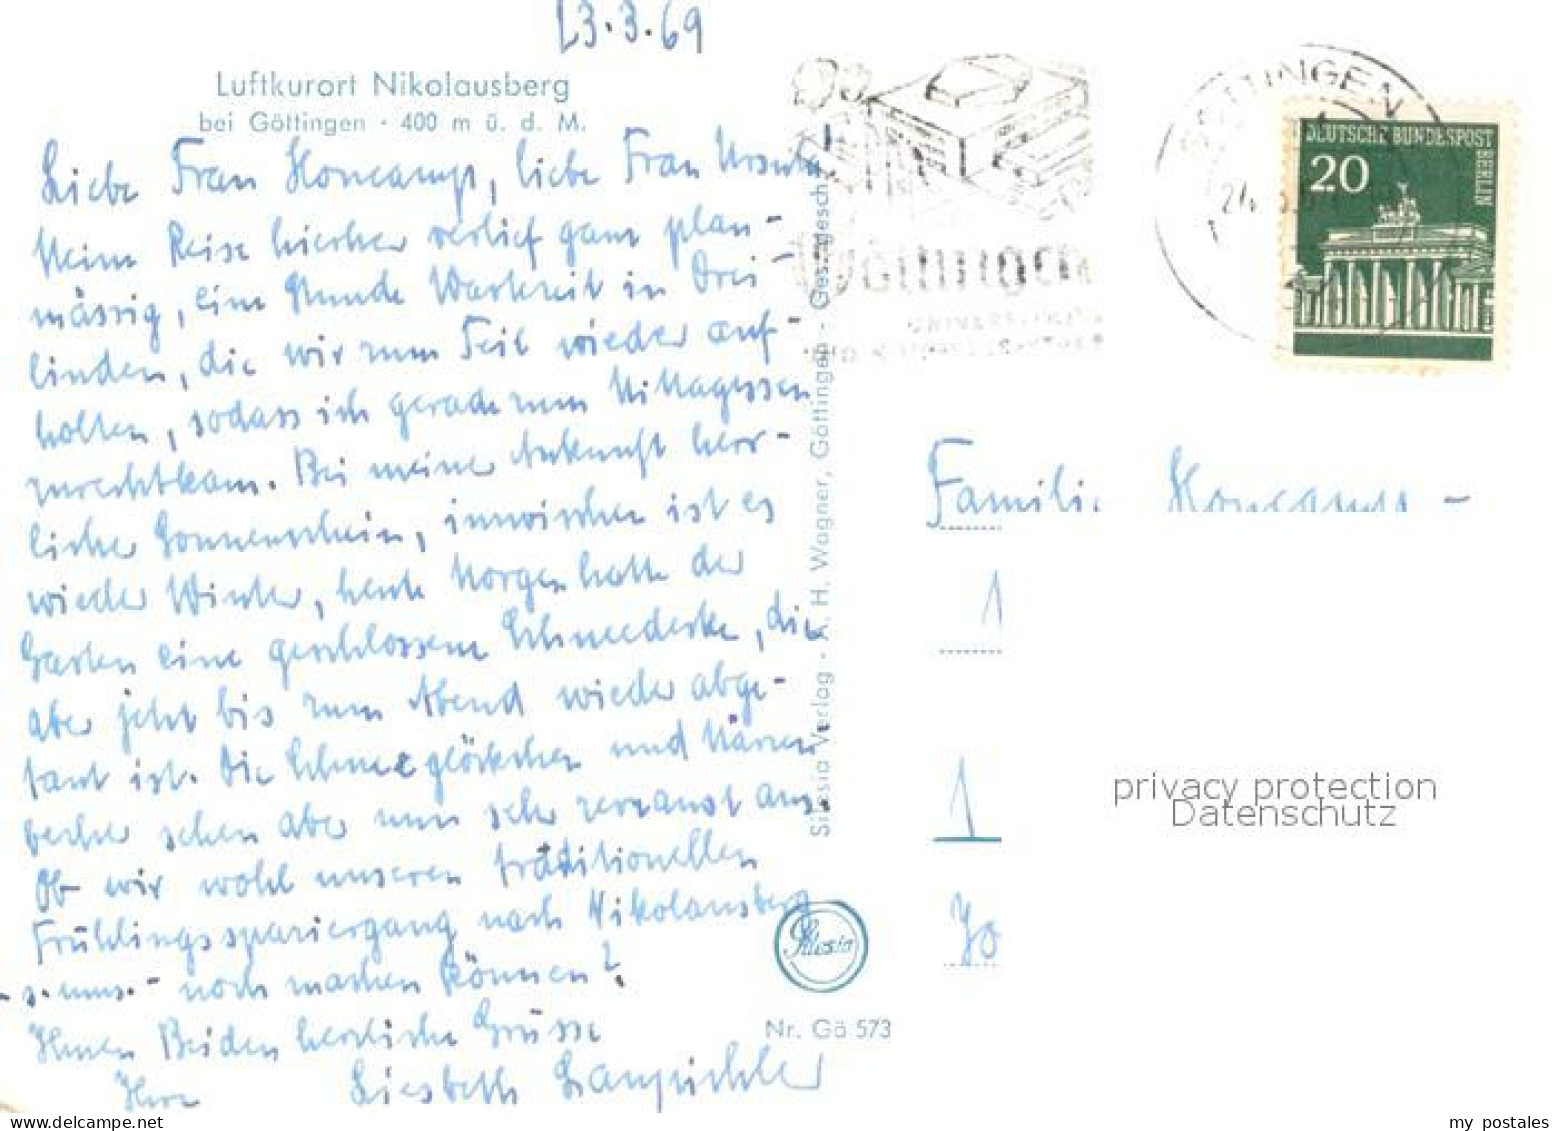 23.3.69
Luftkurort Nikolausberg
bei Göttingen · 400 m ü. d. M.
Liebe Frau Honcamp, liebe Frau Ursula,
Meine Reise hierher verlief ganz plan-
mässig, eine Stunde Wartezeit in Drei-
linden, die wir zum Teil wieder auf-
holten, sodass ich gerade zum Mittagessen
zurechtkam. Bei meiner Ankunft herr-
licher Sonnenschein, inzwischen ist es
wieder Winter, heute Morgen hatte der
Garten eine geschlossene Schneedecke, die
aber jetzt bis zum Abend wieder abge-
taut ist. Die Schneeglöckchen und Märzen-
becher sehen aber nun sehr zerzaust aus.
Ob wir wohl unseren traditionellen
Frühlingsspaziergang nach Nikolausberg
- s. ums. - noch machen können?
Ihnen Beiden herzliche Grüsse
Ihre Liesbeth
Silesia Verlag - A. H. Wagner, Göttingen - Ges. gesch.
Silesia
Nr. Gö 573
Göttingen
GÖTTINGEN
DEUTSCHE BUNDESPOST
BERLIN
20
Familie Honcamp -
1
1
Jo
privacy protection
Datenschutz
delcampe.net
my_postales